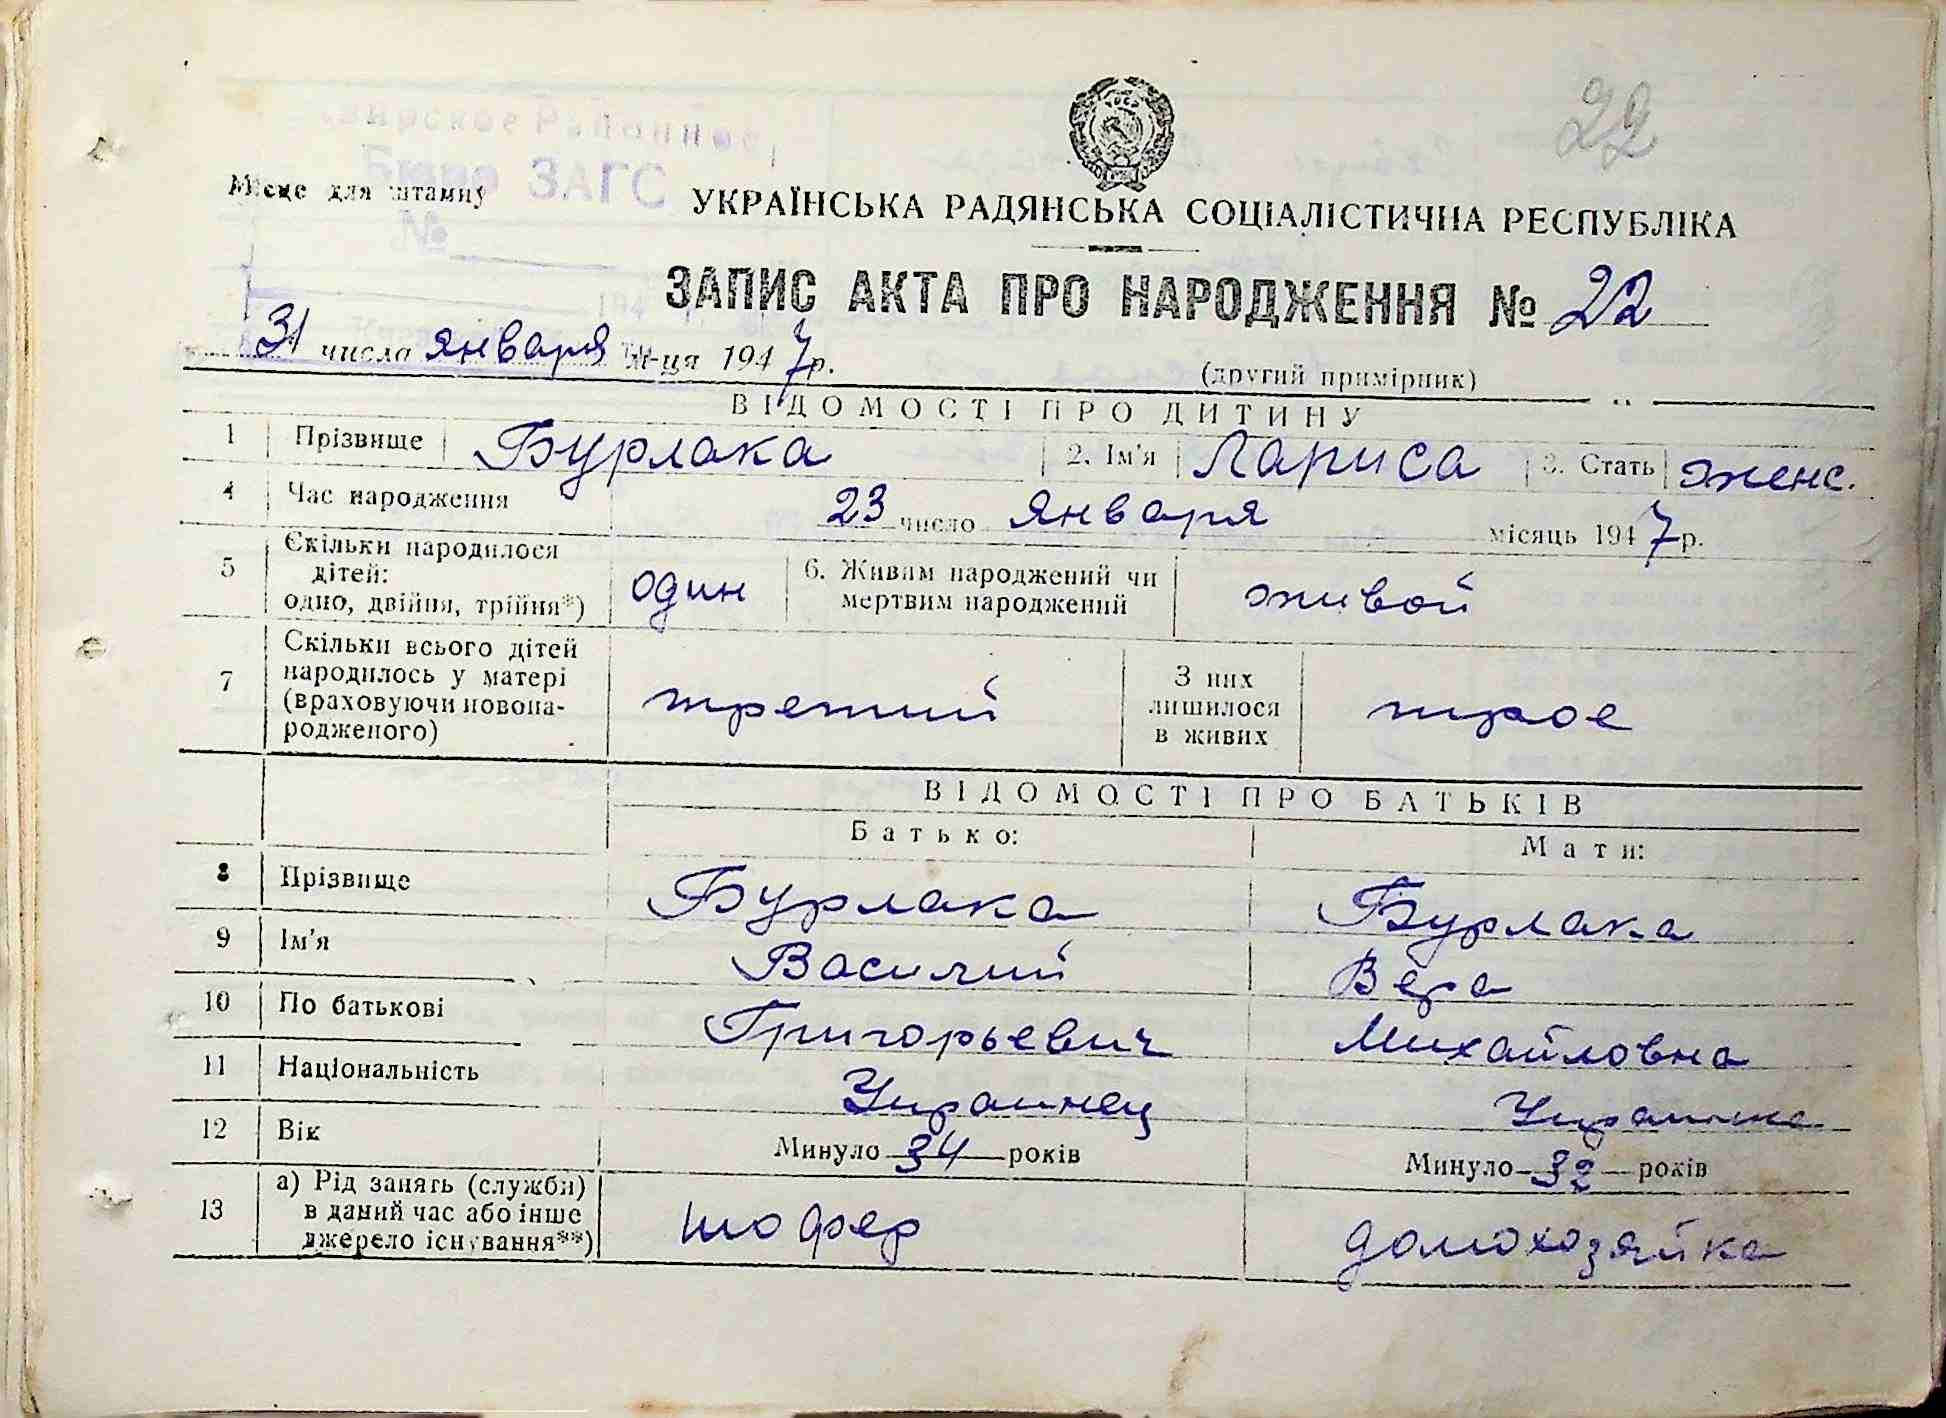 22
Районное
Бюро ЗАГС
Місце для штампу
№
194
УКРАЇНСЬКА РАДЯНСЬКА СОЦІАЛІСТИЧНА РЕСПУБЛІКА
ЗАПИС АКТА ПРО НАРОДЖЕННЯ № 22
31 числа января м-ця 1947 р.
(другий примірник)
ВІДОМОСТІ ПРО ДИТИНУ
1 Прізвище Бурлака 2. Ім'я Лариса 3. Стать женс.
4 Час народження 23 число января місяць 1947 р.
5 Скільки народилося
дітей:
одно, двійня, трійня*) один 6. Живим народжений чи
мертвим народжений живой
7 Скільки всього дітей
народилось у матері
(враховуючи новона-
родженого) третий З них
лишилося
в живих трое
ВІДОМОСТІ ПРО БАТЬКІВ
Батько: Мати:
8 Прізвище Бурлака Бурлака
9 Ім'я Василий Вера
10 По батькові Григорьевич Михайловна
11 Національність Украинец Украинка
12 Вік Минуло 34 років Минуло 32 років
13 а) Рід занять (служби)
в даний час або інше
джерело існування**) шофер домохозяйка